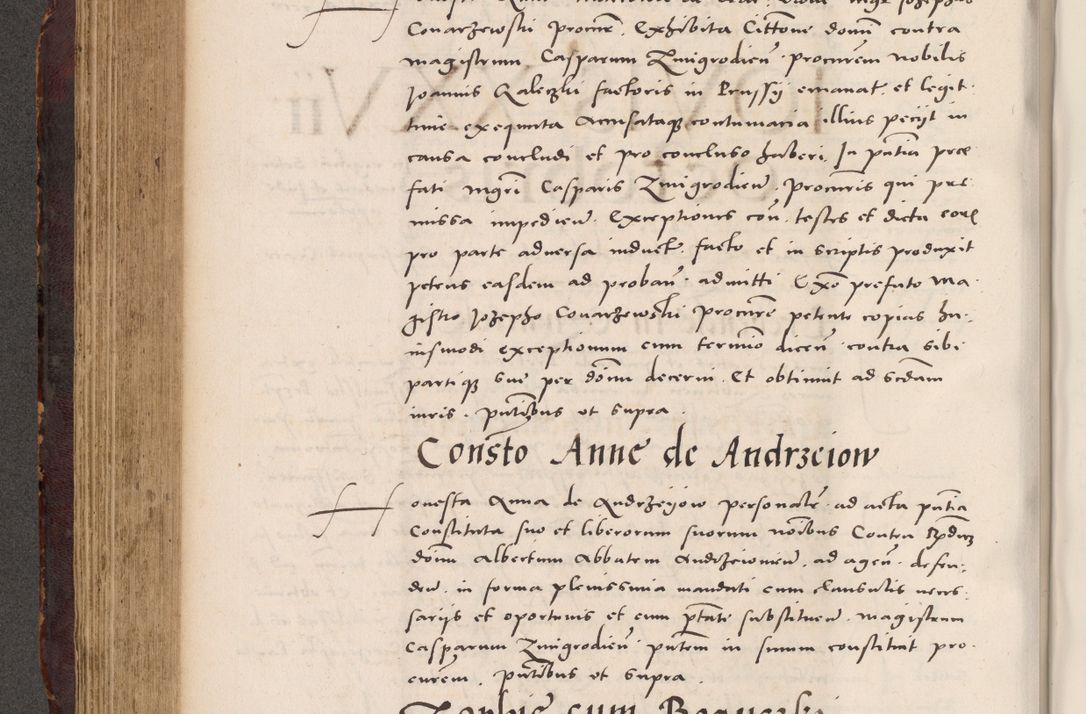 Conarzewski procur. Exhibita Citone domi contra
magistrum Casparum Zmigrodien procurem nobilis
Joannis Kaleczki factoris in Prussij emanat et legit
time exequuta Accusataq contumacia illius pecijt in
causa concludi et pro concluso haberi. In pntia pre
fati mgri Casparis Zmigrodien Procuris qui pre
missa impedien. Exceptiones con. testes et dicta eor
pro parte adversa induct. facto et in scriptis produxit
petens easdem ad proban. admitti Exo prefato Ma
gistro Josepho Conarzewski Procure petente copias hu
iusmodi exceptionum cum termio dicen contra sibi
partiq sue per domi decerni. Et obtinuit ad scdam
iuris. pntibus ut supra.
Consto Anne de Andrzeiow
Honesta Anna de Andrzeyow personalr ad acta pntia
Constituta suo et liberorum suorum noibus Contra Rndum
domi Albertum Abbatem Andrzeiovien. ad agen. defen
den. in forma plenissima mandati cum clausulis neces
sarijs et oportunis et cum ptate substituen. Magistrum
Casparum Zmigrodien pntem in suum constituit pro
curem. pntibus ut supra.
cum